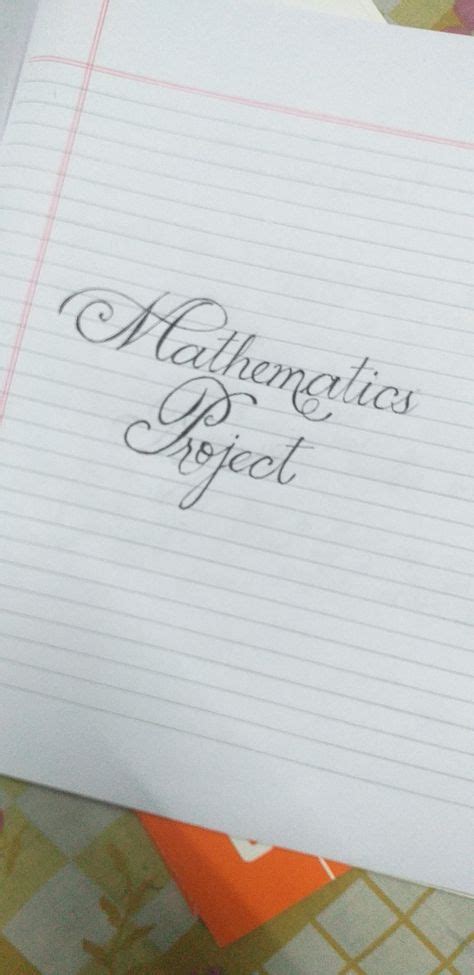 Mathematics
Project